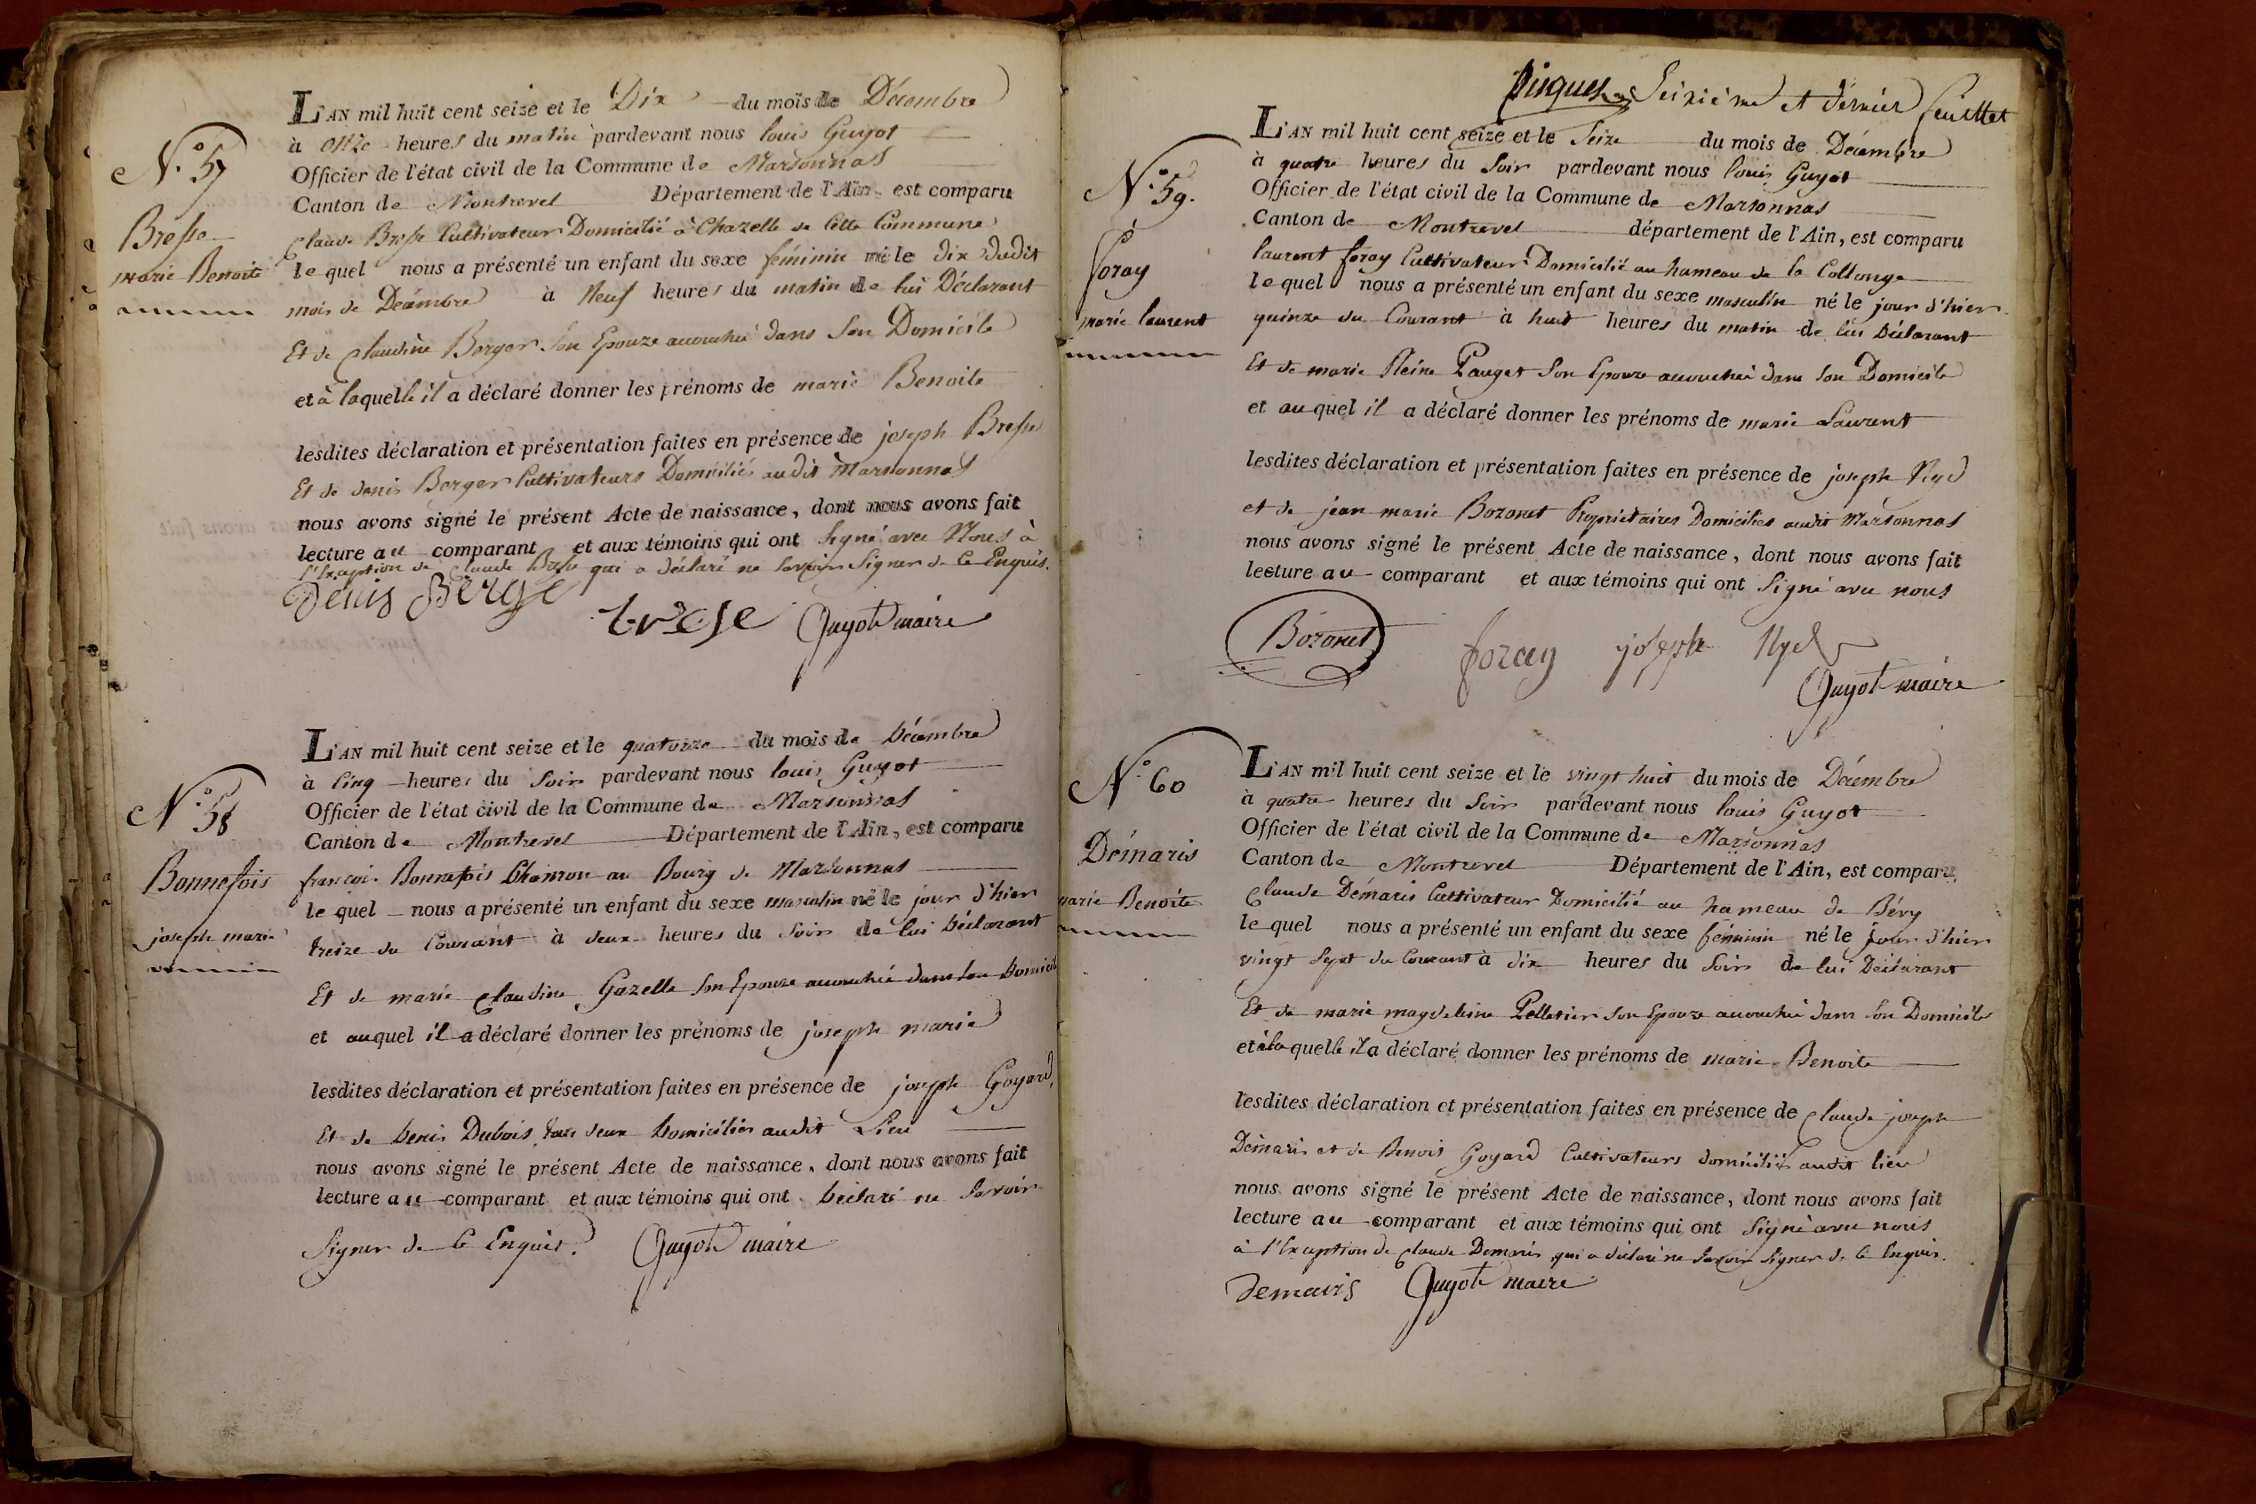 N.° 57
Bresse
marie Benoite
L'AN mil huit cent seize et le Dix du mois de Décembre
à onze heures du matin pardevant nous louis Guyot
Officier de l'état civil de la Commune de Marsonnas
Canton de Montrevel Département de l'Ain, est comparu
Claude Bresse Cultivateur Domicilié à Chazelle de Cette Commune
lequel nous a présenté un enfant du sexe féminin né le dix dudit
mois de Décembre à Neuf heures du matin de lui Déclarant
Et de Claudine Berger Son Epouze accouchée dans Son Domicile
et à laquelle il a déclaré donner les prénoms de marie Benoite
lesdites déclaration et présentation faites en présence de joseph Bresse
Et de denis Berger Cultivateurs Domiciliés audit Marsonnas
nous avons signé le présent Acte de naissance, dont nous avons fait
lecture au comparant et aux témoins qui ont signé avec Nous à
l'Exception de Claude Bresse qui a déclaré ne savoir Signer de Ce Enquis.
Denis Berge bresse Guyot maire
N.° 58
Bonnefois
joseph marie
L'AN mil huit cent seize et le quatorze du mois de Décembre
à Cinq heures du Soir pardevant nous louis Guyot
Officier de l'état civil de la Commune de Marsonnas
Canton de Montrevel Département de l'Ain, est comparu
françois Bonnefois au Bourg de Marsonnas
le quel nous a présenté un enfant du sexe masculin né le jour d'hier
treize du Courant à deux heures du Soir de lui Déclarant
Et de marie Claudine Gazelle Son Epouze accouchée dans Son Domicile
et auquel il a déclaré donner les prénoms de joseph marie
lesdites déclaration et présentation faites en présence de joseph Goyard,
Et de Denis Dubois tous deux Domiciliés audit Lieu
nous avons signé le présent Acte de naissance, dont nous avons fait
lecture au comparant et aux témoins qui ont Déclaré ne Savoir
Signer de Ce Enquis. Guyot maire
Seizième et dernier feuillet
N.° 59.
foray
marie laurent
L'AN mil huit cent seize et le Seize du mois de Décembre
à quatre heures du Soir pardevant nous louis Guyot
Officier de l'état civil de la Commune de Marsonnas
Canton de Montrevel département de l'Ain, est comparu
laurent foray Cultivateur Domicilié au hameau de la Collonge
lequel nous a présenté un enfant du sexe masculin né le jour d'hier
quinze du Courant à huit heures du matin de lui Déclarant
Et de marie Reine Pauget Son Epouze accouchée dans Son Domicile
et auquel il a déclaré donner les prénoms de marie Laurent
lesdites déclaration et présentation faites en présence de joseph Nyd
et de jean marie Bozonet Propriétaires Domiciliés audit Marsonnas
nous avons signé le présent Acte de naissance, dont nous avons fait
lecture au comparant et aux témoins qui ont Signé avec nous
Bozonet foray joseph Nyd
Guyot maire
N.° 60
Démaris
marie Benoite
L'AN mil huit cent seize et le vingt huit du mois de Décembre
à quatre heures du Soir pardevant nous louis Guyot
Officier de l'état civil de la Commune de Marsonnas
Canton de Montrevel Département de l'Ain, est comparu
Claude Démaris Cultivateur Domicilié au hameau de Bévy
le quel nous a présenté un enfant du sexe féminin né le jour d'hier
vingt Sept du Courant à dix heures du Soir de lui Déclarant
Et de marie magdeleine Pelletier Son Epouze accouchée dans Son Domicile
et à la quelle il a déclaré donner les prénoms de marie Benoite
lesdites déclaration et présentation faites en présence de Claude joseph
Démaris et de Benoit Goyard Cultivateurs domiciliés audit lieu
nous avons signé le présent Acte de naissance, dont nous avons fait
lecture au comparant et aux témoins qui ont Signé avec nous
à l'Exception de Claude Demaris qui a déclaré ne Savoir Signer de Ce Enquis.
demaris Guyot maire